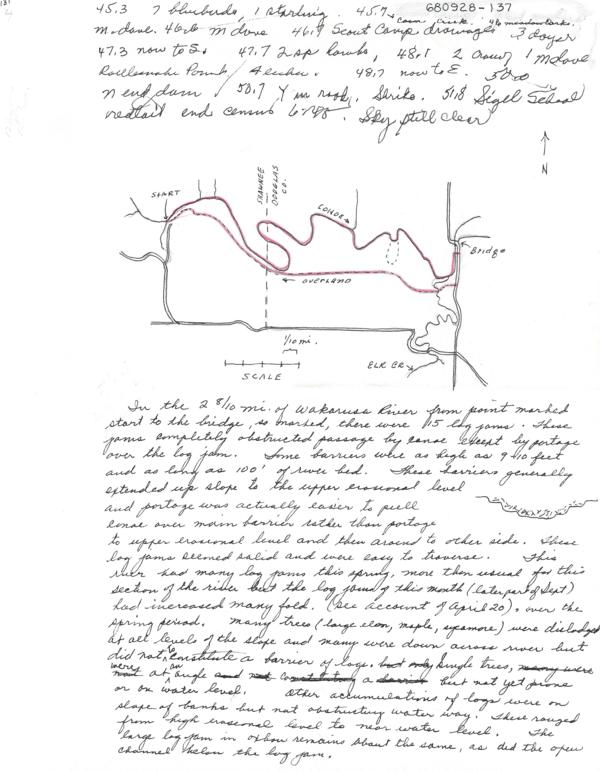 680928-137
45.3 7 bluebirds, 1 starling. 45.7, Coon Creek. 46 meadowlarks.
M. dove. 46.6 M dove 46.9 Scout Camp drawages 3 doger
47.3 now to S. 47.7 2 sp hawks, 48.1 2 crow, 1 M dove
Rattlesnake Point, 48.7 now to E. 50.0
N end dam. 50.7 Y in road. Shrike. 51.8 Sigel School
redtail end census Sky still clear
N
START
SHAWNEE
DOUGLAS CO.
Bridge
OVERLAND
1/10 mi.
SCALE
ELK CR.
In the 2 8/10 mi. of Wakarusa River from point marked
start to the bridge, so marked, there were 15 log jams. These
jams completely obstructed passage by canoe except by portage
over the log jam. Some barriers were as high as 9-10 feet
and as long as 100' of river bed. These barriers generally
extended up slope to the upper erosional level
and portage was actually easier to pull
canoe over main barrier rather than portage
to upper erosional level and then around to other side. These
log jams seemed solid and were easy to traverse. This
river had many log jams this spring, more then usual for this
section of the river but the log jams of this month (later part of Sept)
had increased many fold. (see account of April 20). over the
spring period. Many trees (large elm, maple, sycamore) were dislodged
at all levels of the slope and many were down across river but
did not constitute a barrier of logs. but only single trees, many were
were at an angle and not constituting a barrier but not yet prone
or on water level. Other accumulations of logs were on
slope of banks but not obstructing water way. These ranged
from high erosional level to near water level. The
large log jam in oxbow remains about the same, as did the open
channel below the log jam.